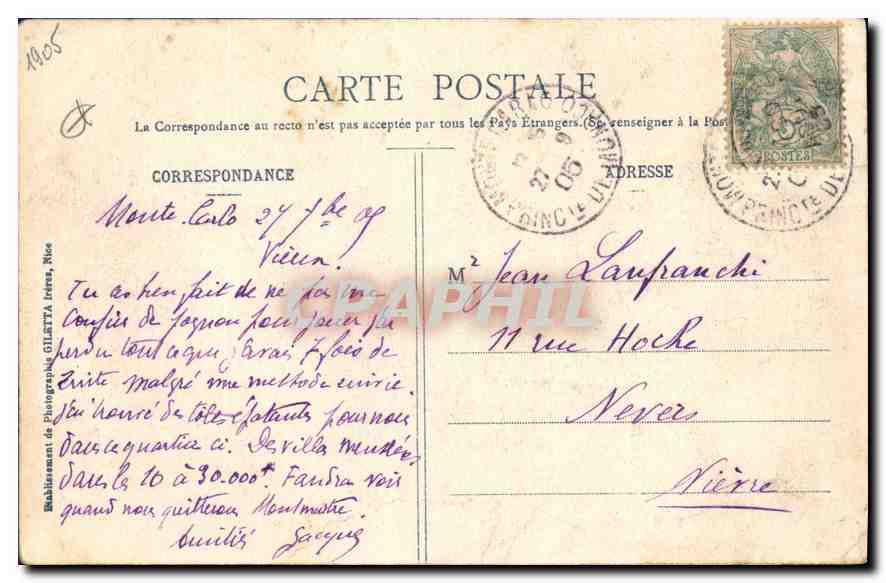 1905
CARTE POSTALE
La Correspondance au recto n'est pas acceptée par tous les Pays Étrangers. (Se renseigner à la Poste
CORRESPONDANCE
ADRESSE
Monte Carlo 27 7bre 05
Vieux.
Tu as bien fait de ne pas me
confier de pognon pour jouer j'ai
perdu tout ce que j'avais 7 fois de
suite malgré une methode suivie.
J'ai trouvé des épatantes pour nous
dans ce quartier ci. Des villas meublées
dans les 10 à 30.000f. Faudra voir
quand nous quitterons Montmartre.
Amitiés Jacques
Mr Jean Lanfranchi
11 rue Hoche
Nevers
Nièvre
Etablissement de Photographie GILETTA frères, Nice
27
9
05
PRINCTE DE
POSTES
5
PRINCTE DE
CPAPHIL